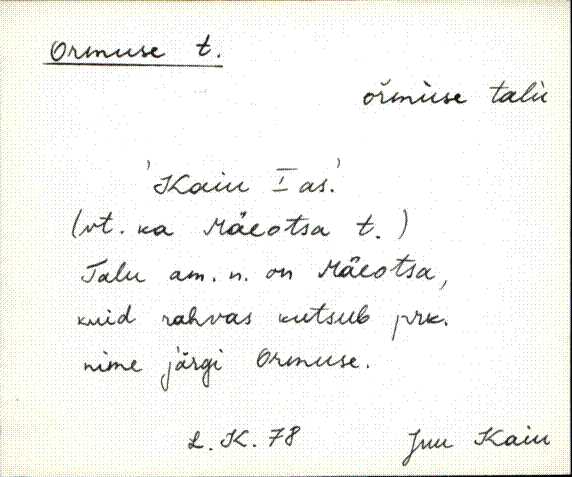 Ormuse t.
oŕmuse talu
'Kaiu I as.'
(vt. ka Mäeotsa t.)
Talu am. n. on Mäeotsa,
kuid rahvas kutsub prk.
nime järgi Ormuse.
L. K. 78 Juu Kaiu